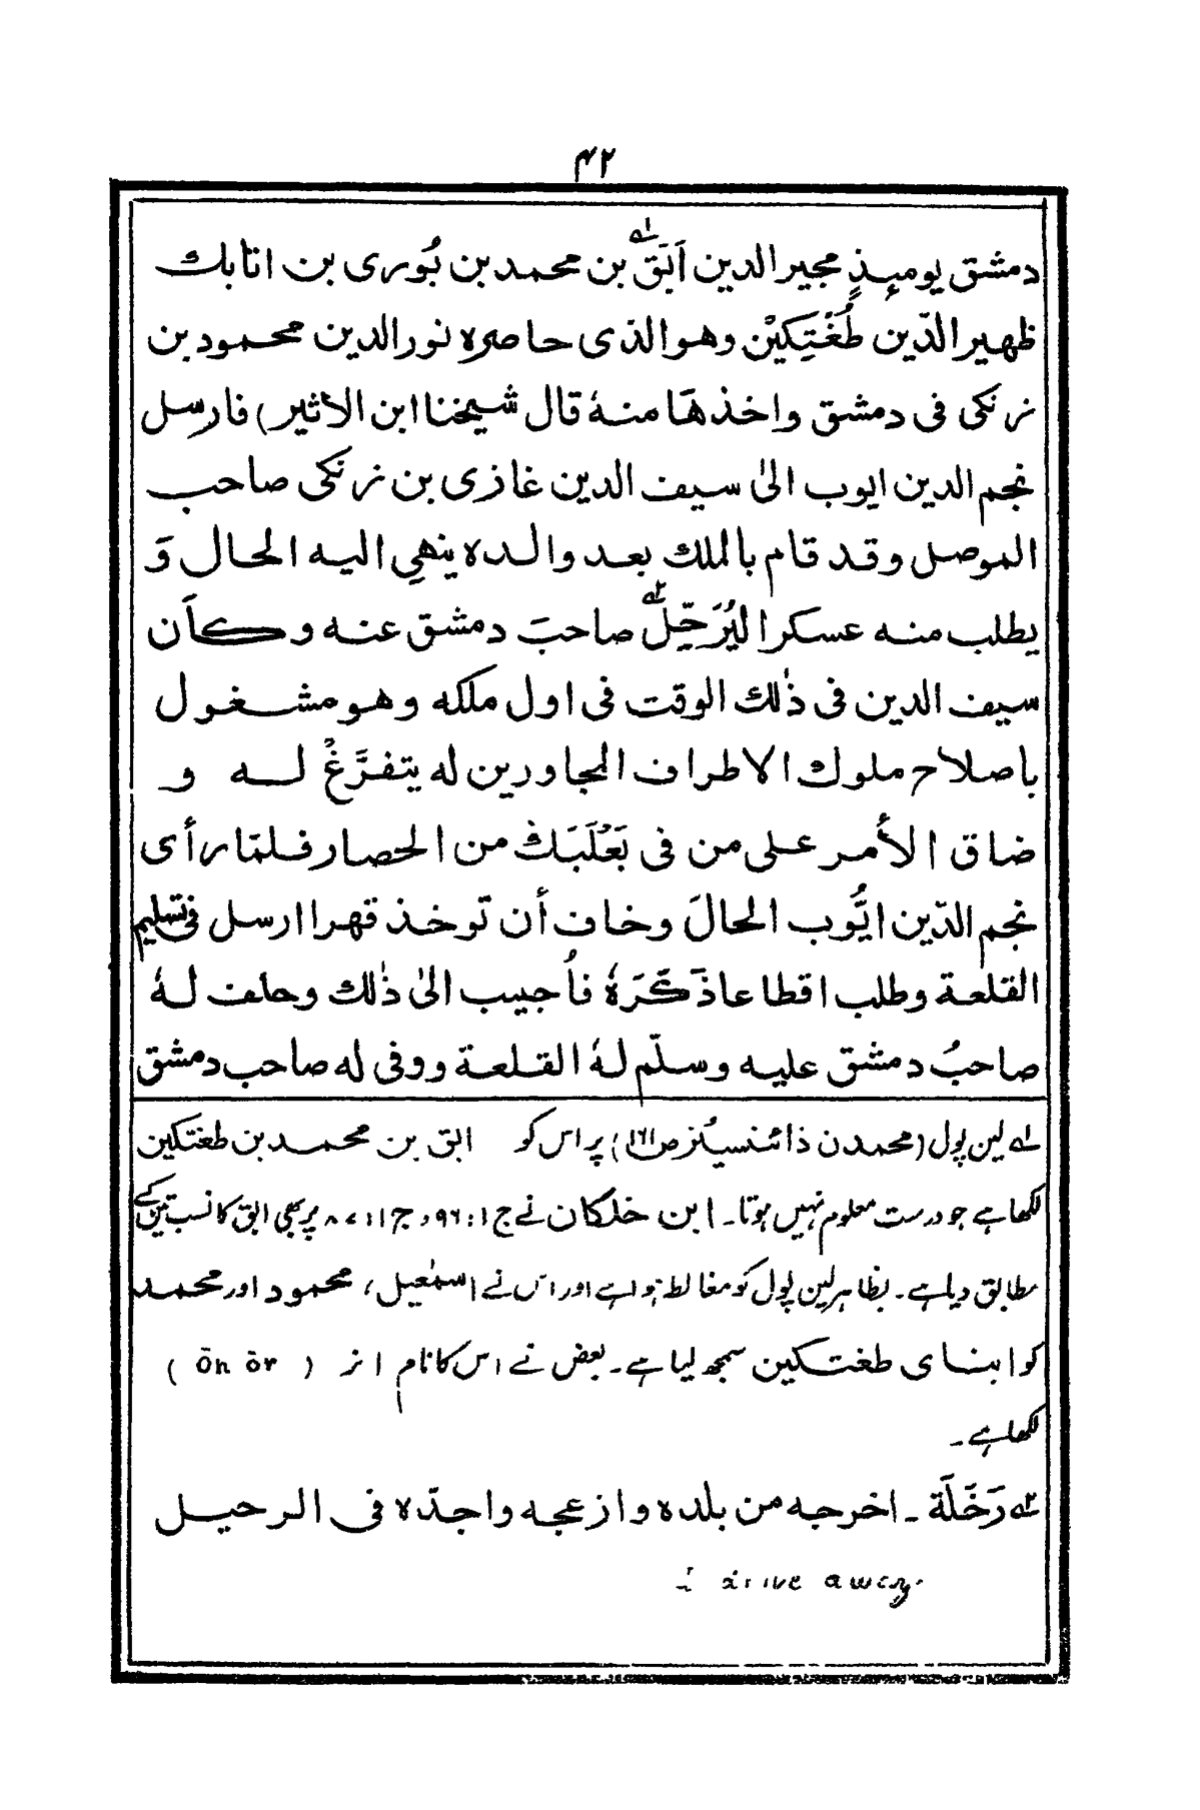 ۴۲
دمشق يومئذٍ مجير الدين اَبَق<sup>۱ے</sup> بن محمد بن بُوری بن اتابك
ظهير الدّين طُغْتِكِيْن وهو الذی حاصره نور الدين محمود بن
زنکی فی دمشق واخذهَا منهٗ قال شيخنا ابن الاثير) فارسل
نجم الدين ايوب الیٰ سيف الدين غازی بن زنکی صاحب
الموصل وقد قام بالملك بعد والده ينهیِ اليه الحال وَ
يطلب منه عسكرا ليُرَحِّلَ<sup>۲ے</sup> صاحبَ دمشق عنه وكاَن
سيف الدين فی ذٰلك الوقت فی اول ملكه وهو مشغول
باصلاح ملوك الاطراف المجاورين له يتفرَّغْ لـه و
ضاق الأمر علی من فی بَعْلَبَك من الحصار فلمّا رأی
نجم الدّين ايُّوب الحالَ وخاف أن توخذ قهرا ارسل فی تسليم
القلعة وطلب اقطاعا ذَكَرَهٗ فأُجيب الیٰ ذٰلك وحلف لهٗ
صاحبُ دمشق عليه وسلّم لهٗ القلعة ووفی له صاحب دمشق
۱ے لین پول (محمدن ڈائنسیٹیز ص۱۶۱) پر اس کو ابق بن محمد بن طغتكين
لکھا ہے جو درست معلوم نہیں ہوتا۔ ابن خلکان نے ج۱ : ۹۶، ج۱۱ : ۸۷ پر بھی ابق کا نسب متن کے
مطابق دیا ہے۔ بظاہر لین پول کو مغالطہ ہوا ہے اور اس نے اسمٰعیل، محمود اور محمد
کو ابنای طغتکین سمجھ لیا ہے۔ بعض نے اس کا نام انر ( Ōn ōr )
لکھا ہے۔
۲ے رَحَّلَهٗ ۔ اخرجه من بلده وازعجه واجدّه فی الرحیل
drive away.